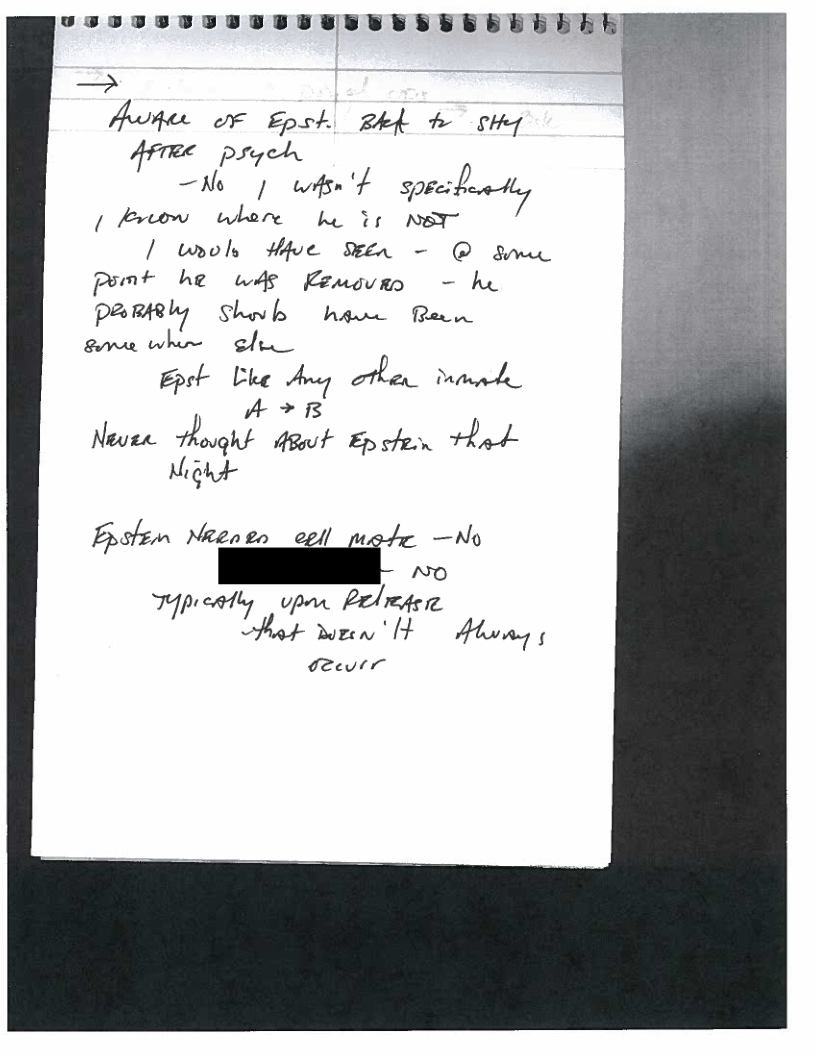 →
AWARE OF Epst. BACK to SHU
AFTER psych
- No I WASN't specifically
I know where he is NOT
I would HAVE SEEN - @ some
point he WAS REMOVED - he
PROBABLY should have Been
some where else
Epst Like Any other inmate
A → B
NEVER thought ABOUT Epstein that
Night
Epstein NEEDED cell mate - NO
- NO
TYPICALLY upon RELEASE
- that DOESN'T Always
occur